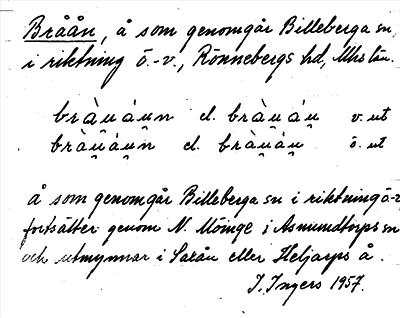 Bråån, å som genomgår Billeberga sn,
i riktning ö.-v., Rönnebergs hd, Mhs län.
bràu̯áu̯n el. bràu̯áu̯ v. ut
bràu̯áu̯n el. bràu̯áu̯ ö. ut
å som genomgår Billeberga sn i riktning ö-v
fortsätter genom N. Möinge i Asmundtorps sn
och utmynnar i Saxån eller Heljarps å.
I. Ingers 1957.